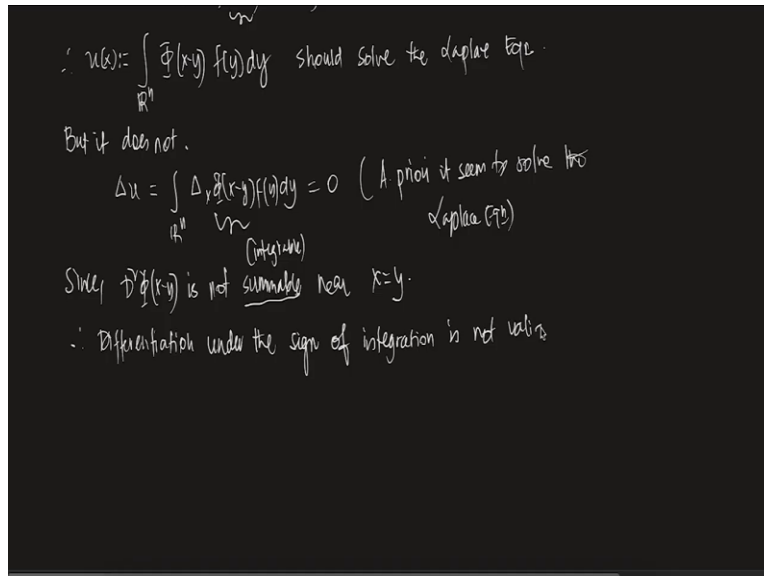 ∴ u(x) := ∫_{ℝⁿ} Φ(x-y) f(y) dy should solve the Laplace Eqn.
But it does not.
Δu = ∫_{ℝⁿ} Δₓ Φ(x-y) f(y) dy = 0 (A priori it seem to solve the
Laplace Eqn)
(integrable)
Since, D²Φ(x-y) is not summable near x=y.
∴ Differentiation under the sign of integration is not valid